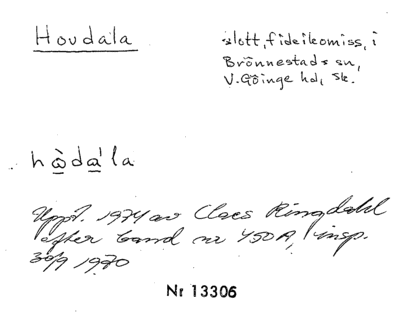 Hovdala
slott, fideikomiss, i
Brönnestads sn,
V. Göinge hd, Sk.
hὼda̍la
Uppt. 1974 av Claes Ringdahl
efter band nr 450A, insp.
30/9 1970
Nr 13306